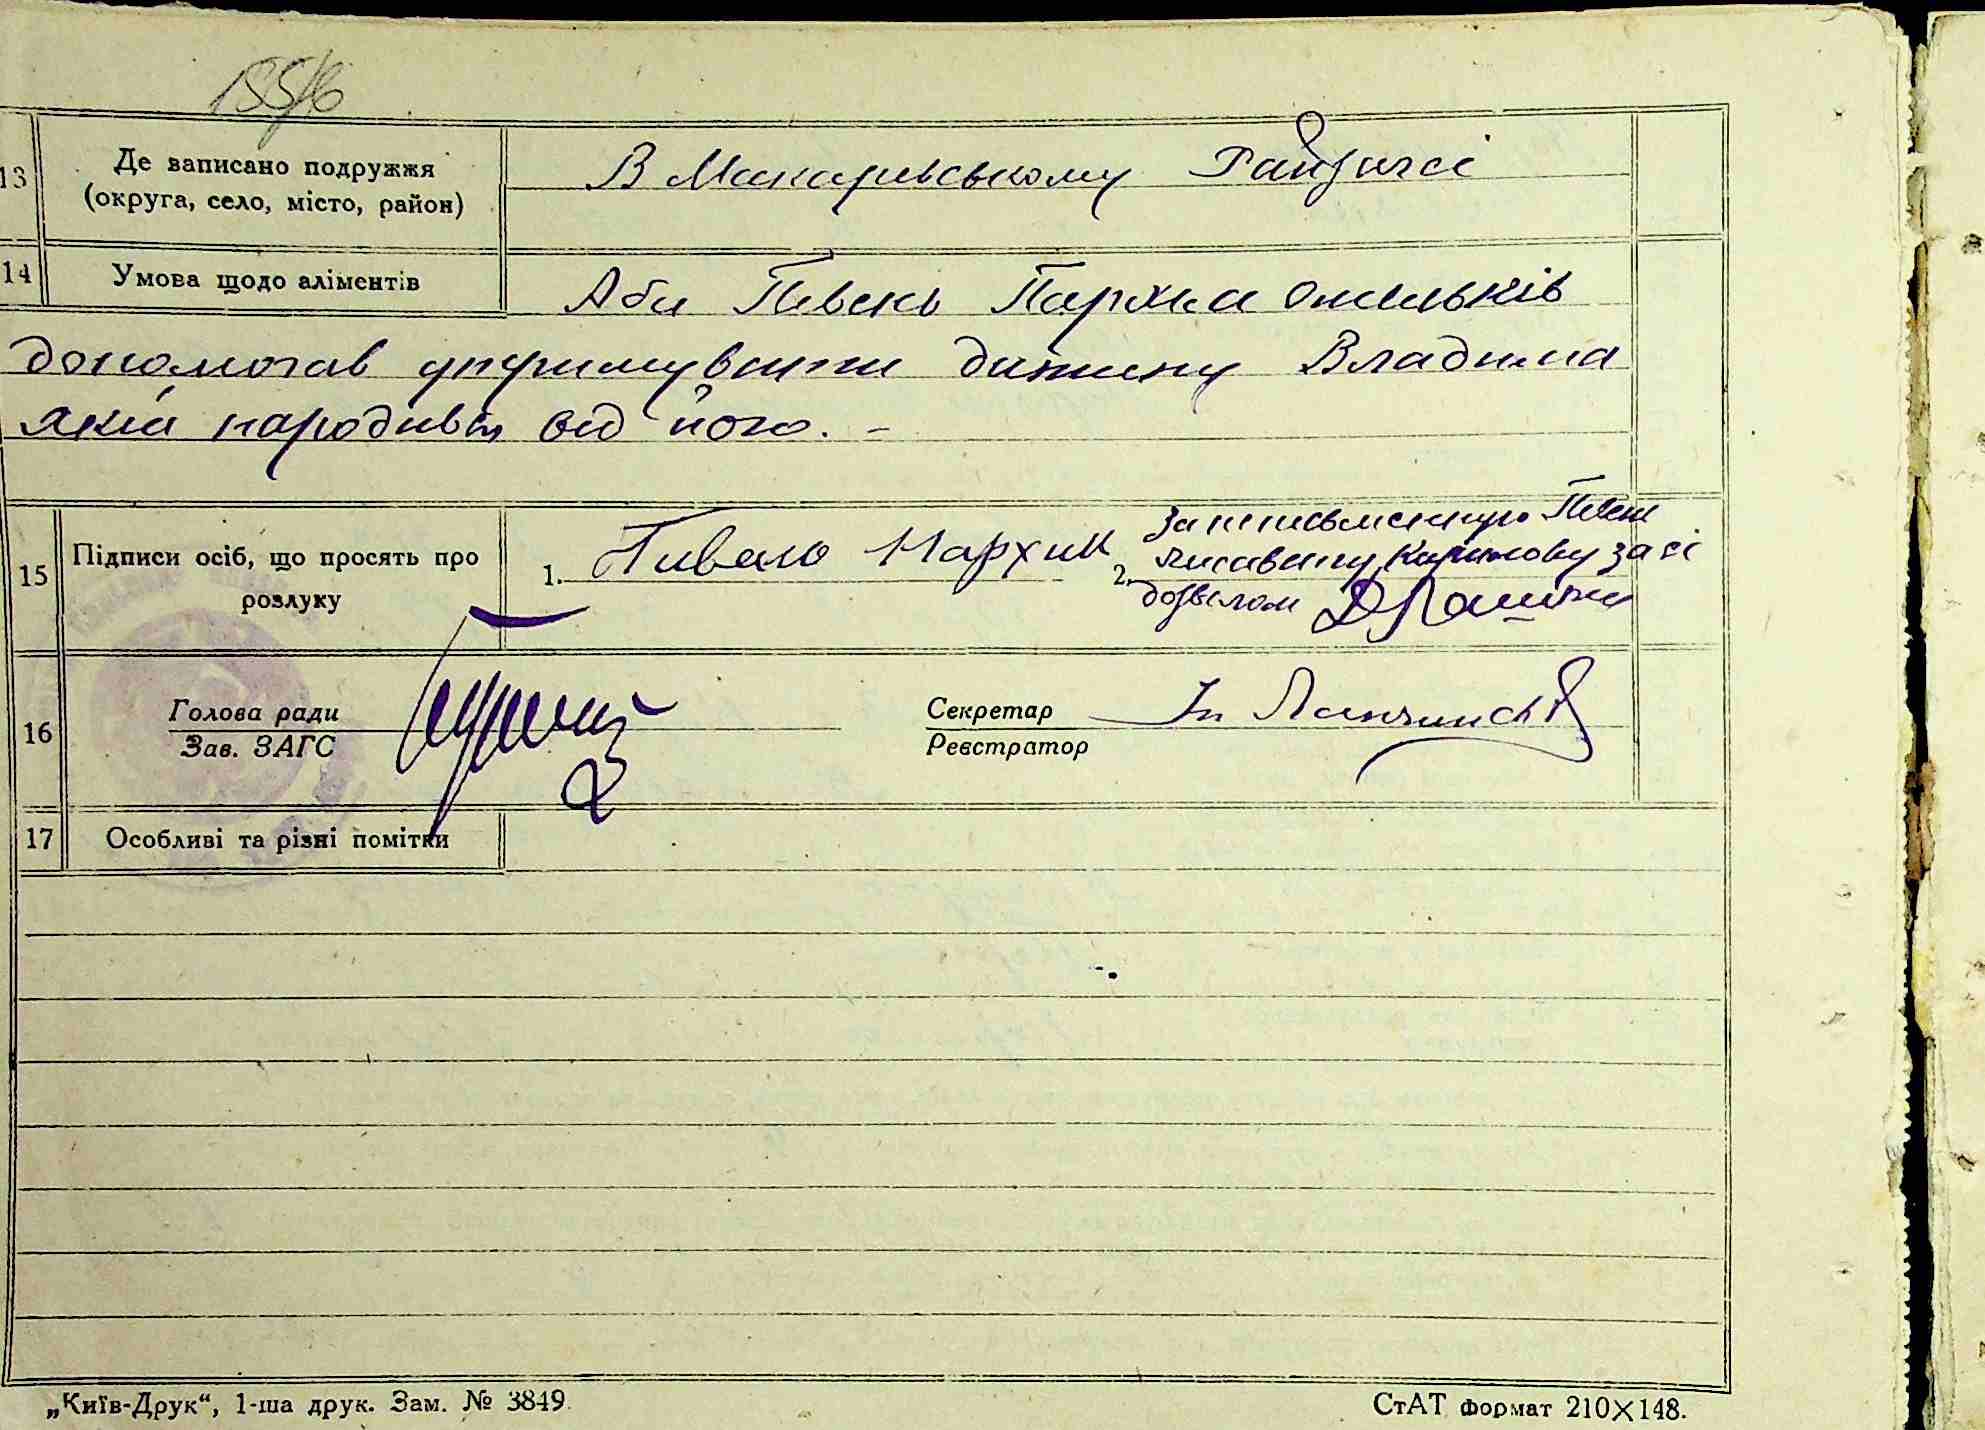 155/6
13 Де записано подружжя
(округа, село, місто, район)
В Макарівському Райзагсі
14 Умова щодо аліментів
Аби Півень Пархім Омельків
допомогав утримувати дитину Владима
який народився від його. –
15 Підписи осіб, що просять про
розлуку
1. Пивень Пархим
2. За неписьменную
дозволом
16 Голова ради
Зав. ЗАГС
Секретар
Реєстратор
17 Особливі та різні помітки
„Київ-Друк“, 1-ша друк. Зам. № 3849
СтАТ формат 210×148.